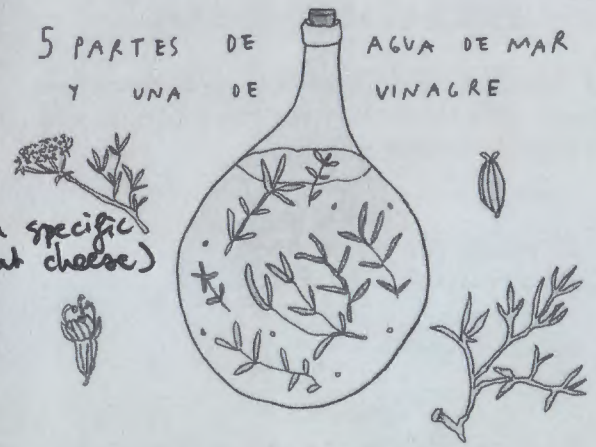 5 PARTES DE AGUA DE MAR
Y UNA DE VINAGRE
specific
cheese)